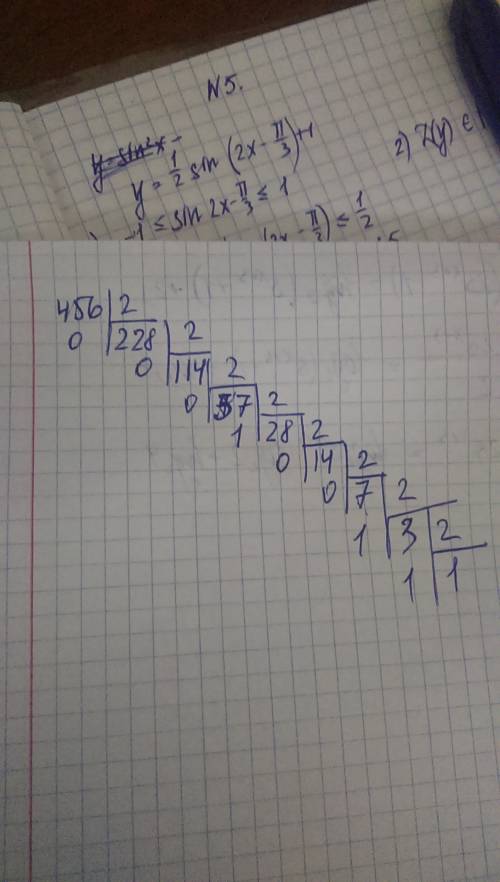 N5.
y = sin²x -
y = 1/2 sin (2x - π/3) + 1
-1 ≤ sin 2x - π/3 ≤ 1
2) Z(y) ∈
(2x - π/3) ≤ 1/2
456 | 2
0 | 228 | 2
0 | 114 | 2
0 | 57 | 2
1 | 28 | 2
0 | 14 | 2
0 | 7 | 2
1 | 3 | 2
1 | 1